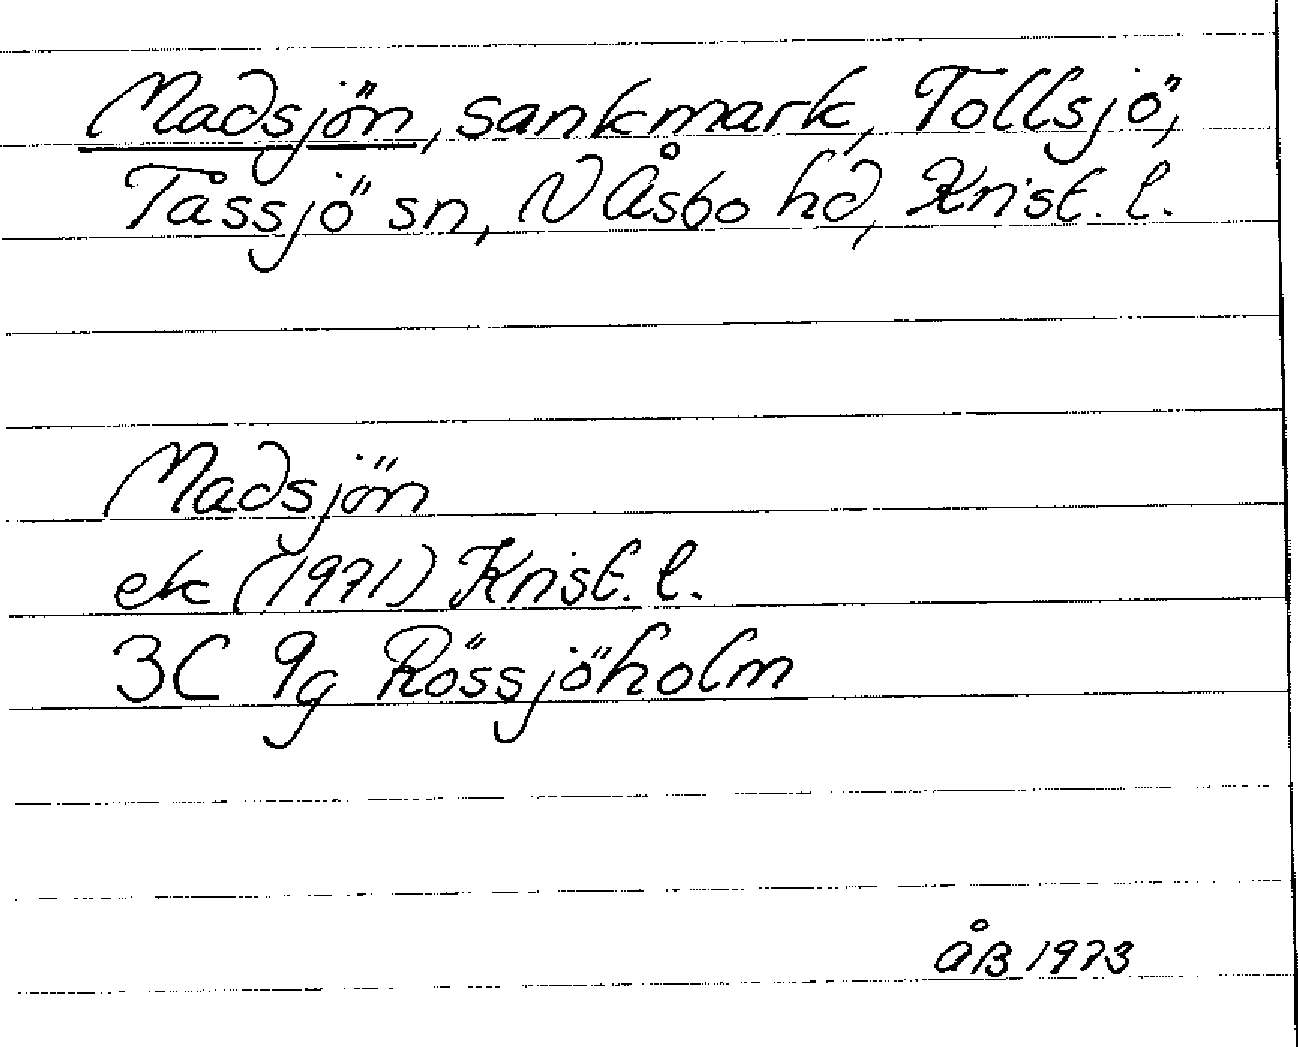 Madsjön, sankmark, Tollsjö,
Tåssjö sn, N Åsbo hd, Krist. l.
Madsjön
ek (1971) Krist. l.
3C 9g Rössjöholm
ÅB 1973